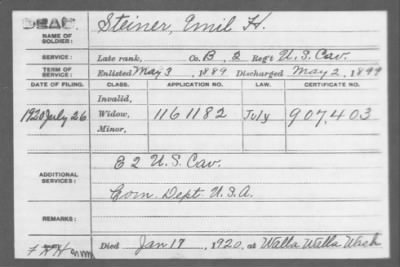 DEAD.
NAME OF SOLDIER: Steiner, Emil H.
SERVICE: Late rank, Co. B, 2 Reg't U.S. Cav.
TERM OF SERVICE: Enlisted May 3, 1889, Discharged May 2, 1899
DATE OF FILING. CLASS. APPLICATION NO. LAW. CERTIFICATE NO.
Invalid,
1920 July 26 Widow, 1161182 July 907,403
Minor,
ADDITIONAL SERVICES: E 2 U.S. Cav.
Com. Dept. U.S.A.
REMARKS:
Died Jan 17, 1920, at Walla Walla Wash